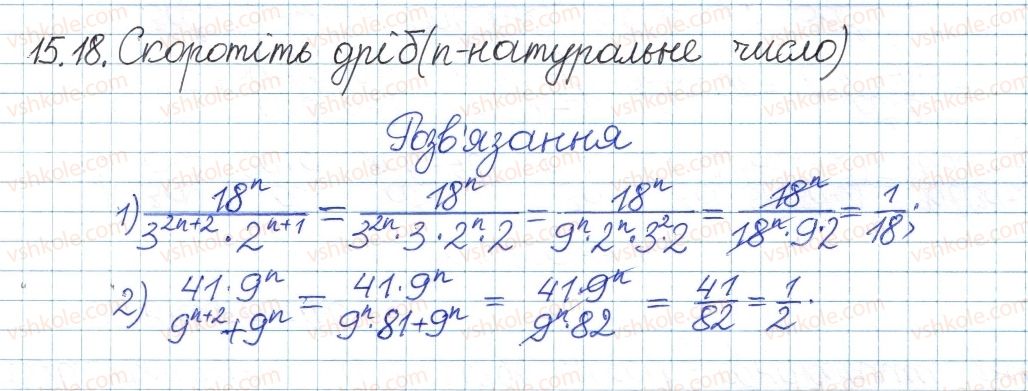 15.18. Скоротіть дріб (n-натуральне число)
Розв'язання
1) 18^n / (3^(2n+2) · 2^(n+1)) = 18^n / (3^(2n) · 3 · 2^n · 2) = 18^n / (9^n · 2^n · 3^2 · 2) = 18^n / (18^n · 9 · 2) = 1/18;
2) 41 · 9^n / (9^(n+2) + 9^n) = 41 · 9^n / (9^n · 81 + 9^n) = 41 · 9^n / (9^n · 82) = 41/82 = 1/2.